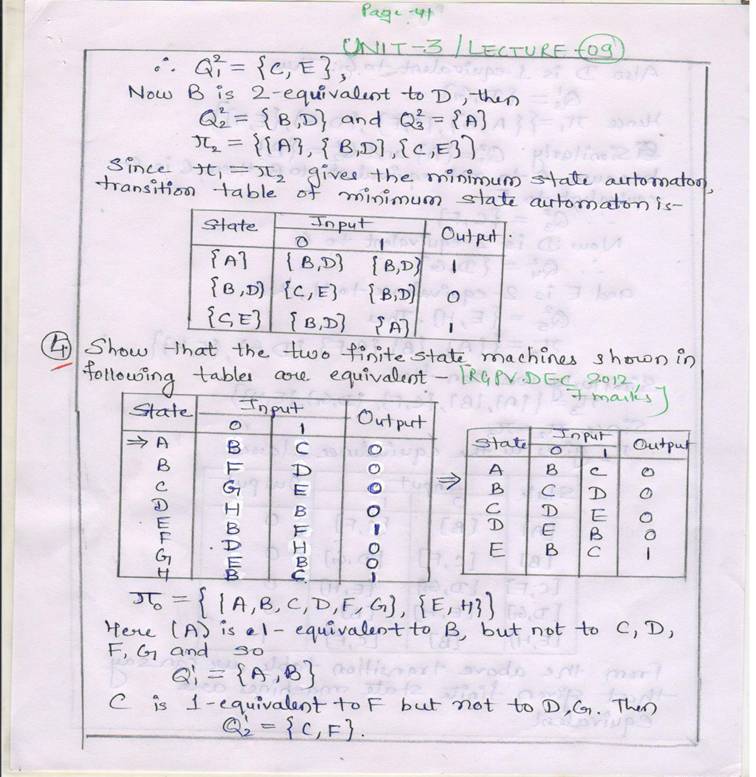 Page-41
UNIT-3 / LECTURE-09
∴ Q₁² = {C, E},
Now B is 2-equivalent to D, then
Q₂² = {B,D} and Q₃² = {A}
π₂ = {{A}, {B,D}, {C,E}}
Since π₁ = π₂ gives the minimum state automaton,
transition table of minimum state automaton is-
State Input Output
0 1
{A} {B,D} {B,D} 1
{B,D} {C,E} {B,D} 0
{C,E} {B,D} {A} 1
4 Show that the two finite state machines shown in
following tables are equivalent - [RGPV.DEC 2012,
7 marks]
State Input Output
0 1
⇒ A B C 0
B F D 0
C G E 0
D H B 0
E B F 1
F D H 0
G E B 0
H B C 1
⇒ State Input Output
0 1
A B C 0
B C D 0
C D E 0
D E B 0
E B C 1
π₀ = {{A,B,C,D,F,G}, {E,H}}
Here (A) is 1- equivalent to B, but not to C, D,
F, G and so
Q₁' = {A,B}
C is 1-equivalent to F but not to D,G. Then
Q₂' = {C,F}.